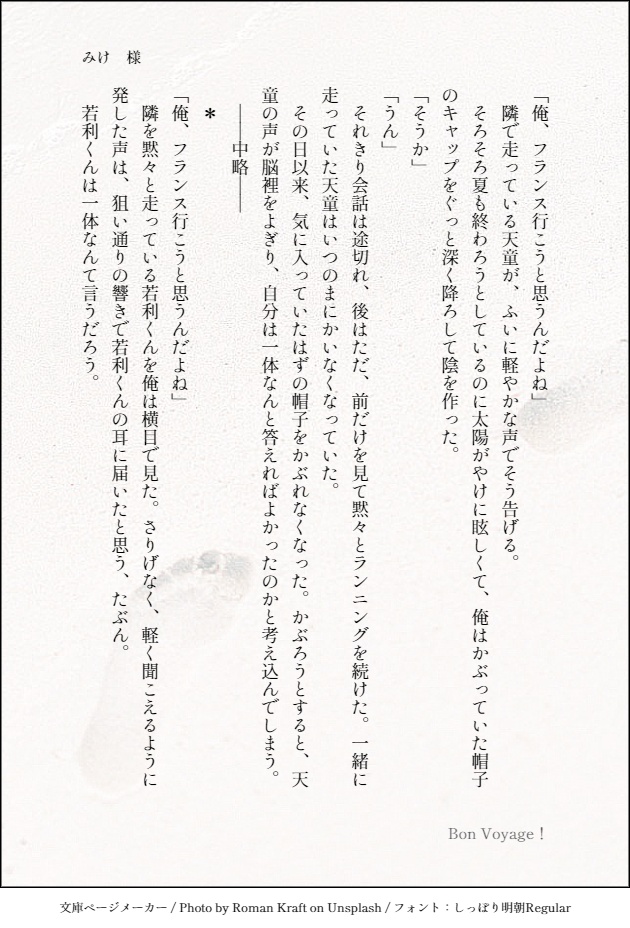 みけ　様
「俺、フランス行こうと思うんだよね」
　隣で走っている天童が、ふいに軽やかな声でそう告げる。
　そろそろ夏も終わろうとしているのに太陽がやけに眩しくて、俺はかぶっていた帽子
のキャップをぐっと深く降ろして陰を作った。
「そうか」
「うん」
　それきり会話は途切れ、後はただ、前だけを見て黙々とランニングを続けた。一緒に
走っていた天童はいつのまにかいなくなっていた。
　その日以来、気に入っていたはずの帽子をかぶれなくなった。かぶろうとすると、天
童の声が脳裡をよぎり、自分は一体なんと答えればよかったのかと考え込んでしまう。
　――中略――
　＊
「俺、フランス行こうと思うんだよね」
　隣を黙々と走っている若利くんを俺は横目で見た。さりげなく、軽く聞こえるように
発した声は、狙い通りの響きで若利くんの耳に届いたと思う、たぶん。
　若利くんは一体なんて言うだろう。
Bon Voyage！
文庫ページメーカー / Photo by Roman Kraft on Unsplash / フォント：しっぽり明朝Regular